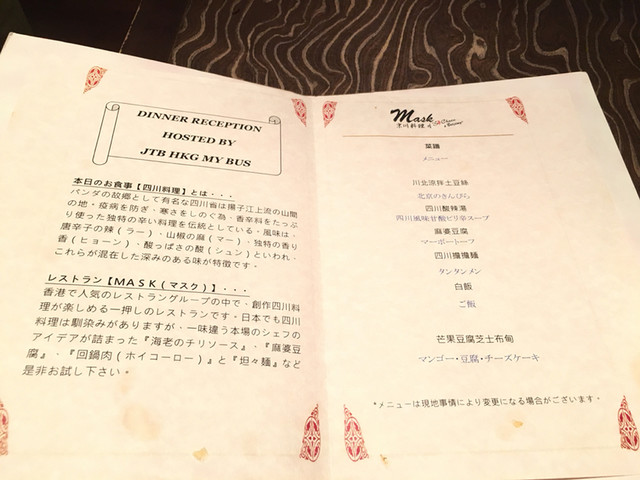 DINNER RECEPTION
HOSTED BY
JTB HKG MY BUS
本日のお食事【四川料理】とは・・・
パンダの故郷として有名な四川省は揚子江上流の山間
の地・疫病を防ぎ、寒さをしのぐ為、香辛料をたっぷ
り使った独特の辛い料理を伝統としている・風味は、
唐辛子の辣（ラー）、山椒の麻（マー）、独特の香り
香（ヒョーン）、酸っぱさの酸（シュン）といわれ、
これらが混在した深みのある味が特徴です。
レストラン【MASK（マスク）】・・・
香港で人気のレストラングループの中で、創作四川料
理が楽しめる一押しのレストランです・日本でも四川
料理は馴染みがありますが、一味違う本場のシェフの
アイデアが詰まった『海老のチリソース』、『麻婆豆
腐』、『回鍋肉（ホイコーロー）』と『坦々麺』など
是非お試し下さい。
Mask
菜譜
メニュー
川北涼拌土豆絲
北京のきんぴら
四川酸辣湯
四川風味甘酸ピリ辛スープ
麻婆豆腐
マーボートーフ
四川擔擔麵
タンタンメン
白飯
ご飯
芒果豆腐芝士布甸
マンゴー・豆腐・チーズケーキ
*メニューは現地事情により変更になる場合がございます。